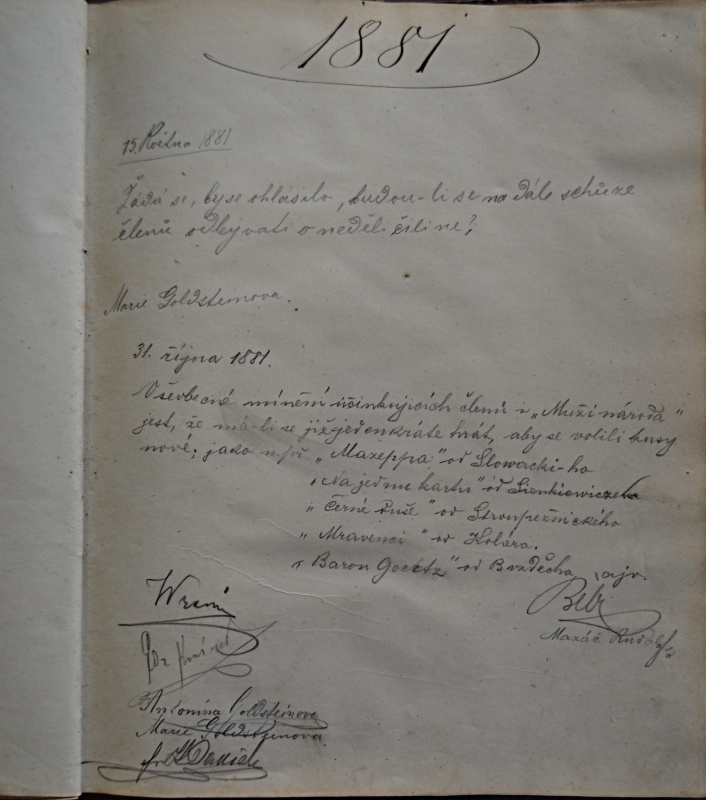 1881
15. Května 1881
Žádá se, by se ohlásilo, budou-li se na dále schůze
členů odbývati o neděli čili ne?
Marie Goldsteinova.
31. října 1881.
Všeobecné mínění účinkujících členů v „Muži národa"
jest, že má-li se již jedenkráte hrát, aby se volili kusy
nové; jako n. př „Mazeppa" od Slowacki-ho
„Na jednu kartu" od Sienkiewicze
„Černé duše" od Stroupežnického
„Mravenci" od Kolára.
„Baron Goertz" od Bozděcha, a jv.
Mazáč Rudolf
Antonína Goldsteinova
Marie Goldsteinova.